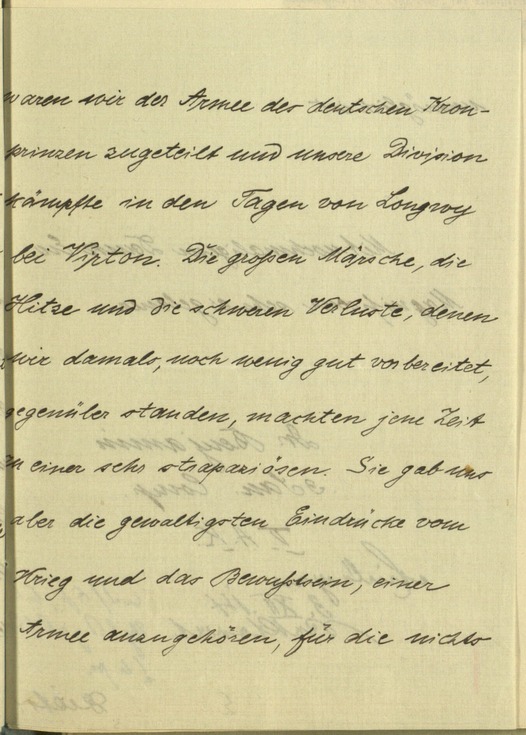 waren wir der Armee des deutschen Kron-
prinzen zugeteilt und unsere Division
kämpfte in den Tagen von Longwy
bei Virton. Die großen Märsche, die
Hitze und die schweren Verluste, denen
wir damals, noch wenig gut vorbereitet,
gegenüber standen, machten jene Zeit
zu einer sehr strapaziösen. Sie gab uns
aber die gewaltigsten Eindrücke vom
Krieg und das Bewußtsein, einer
Armee anzugehören, für die nichts